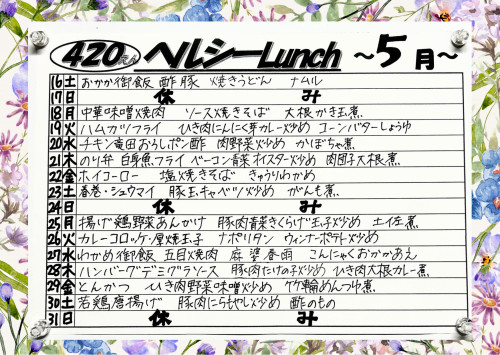 420kcal ヘルシーLunch ～5月～
16 土 おかか御飯 酢豚 焼きうどん ナムル
17 日 休み
18 月 中華味噌焼肉 ソース焼きそば 大根かき玉煮
19 火 ハムカツフライ ひき肉にんにく芽カレー炒め コーンバターしょうゆ
20 水 チキン竜田おろしポン酢 肉野菜炒め かぼちゃ煮
21 木 のり弁 白身魚フライ ベーコン青菜オイスター炒め 肉団子大根煮
22 金 ホイコーロー 塩焼きそば きゅうりわかめ
23 土 春巻・シュウマイ 豚玉キャベツ炒め がんも煮
24 日 休み
25 月 揚げ鶏野菜あんかけ 豚肉青菜きくらげ玉子炒め 土佐煮
26 火 カレーコロッケ・厚焼玉子 ナポリタン ウィンナーポテト炒め
27 水 わかめ御飯 五目焼肉 麻婆春雨 こんにゃくおかかあえ
28 木 ハンバーグデミグラソース 豚肉たけの子炒め ひき肉大根カレー煮
29 金 とんかつ ひき肉野菜味噌炒め 竹輪めんつゆ煮
30 土 若鶏唐揚げ 豚肉にらもやし炒め 酢のもの
31 日 休み